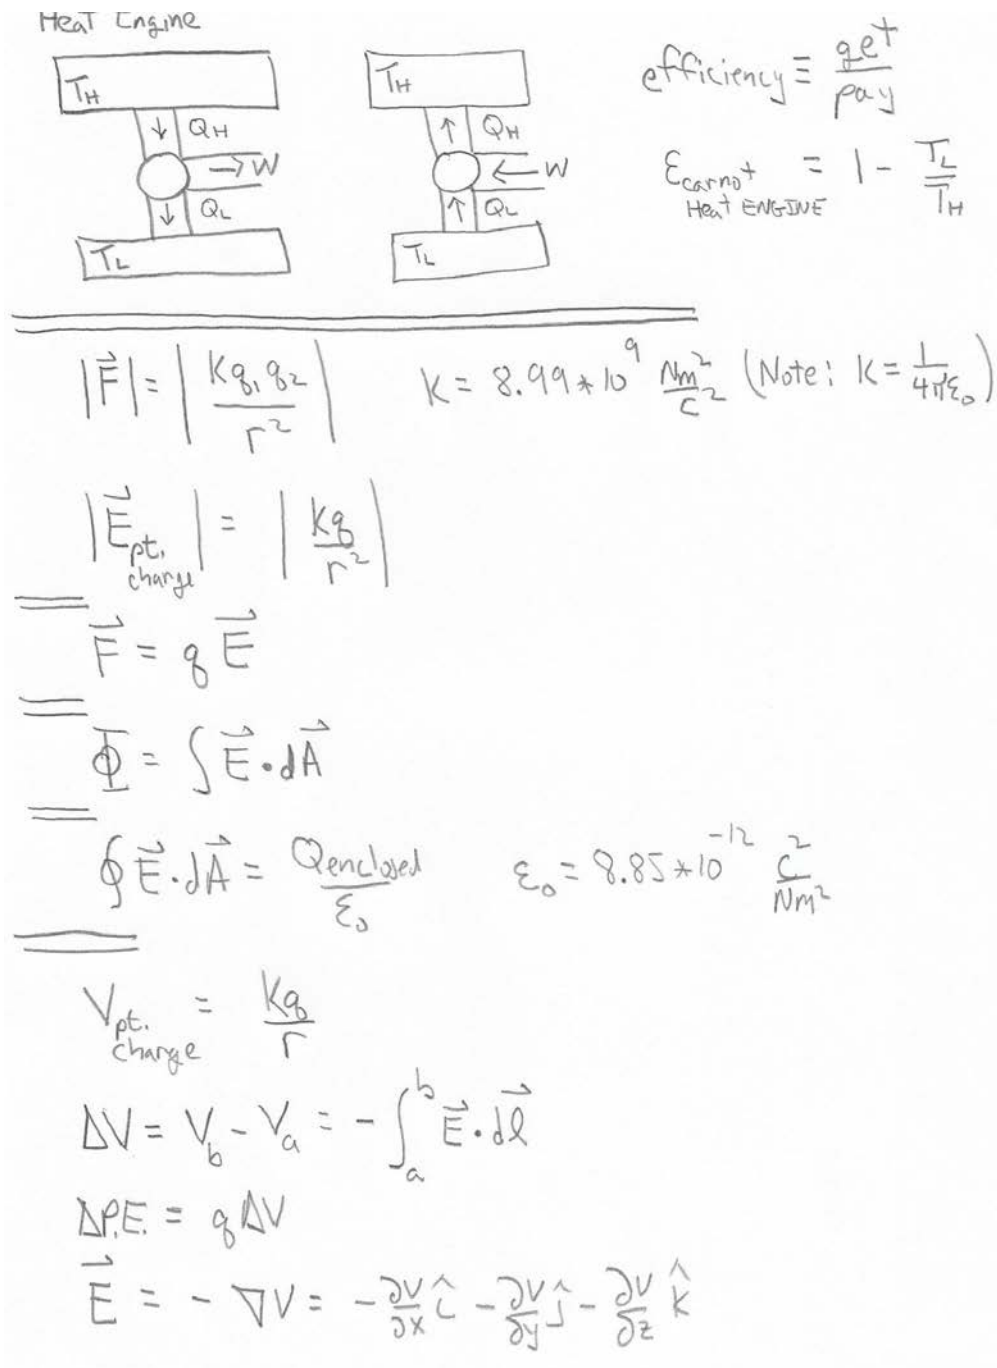 Heat Engine
T_H T_H efficiency ≡ get/pay
Q_H Q_H
→ W ← W ε_carnot Heat ENGINE = 1 - T_L/T_H
Q_L Q_L
T_L T_L
|F⃗| = |Kq₁q₂/r²| K = 8.99*10⁹ Nm²/C² (Note: K = 1/4πε₀)
|E⃗_pt. charge| = |Kq/r²|
F⃗ = qE⃗
Φ = ∫E⃗·dA⃗
∮E⃗·dA⃗ = Qenclosed/ε₀ ε₀ = 8.85*10⁻¹² C²/Nm²
V_pt. charge = Kq/r
ΔV = V_b - V_a = -∫_a^b E⃗·dℓ⃗
ΔP.E. = qΔV
E⃗ = -∇V = -∂V/∂x î - ∂V/∂y ĵ - ∂V/∂z k̂